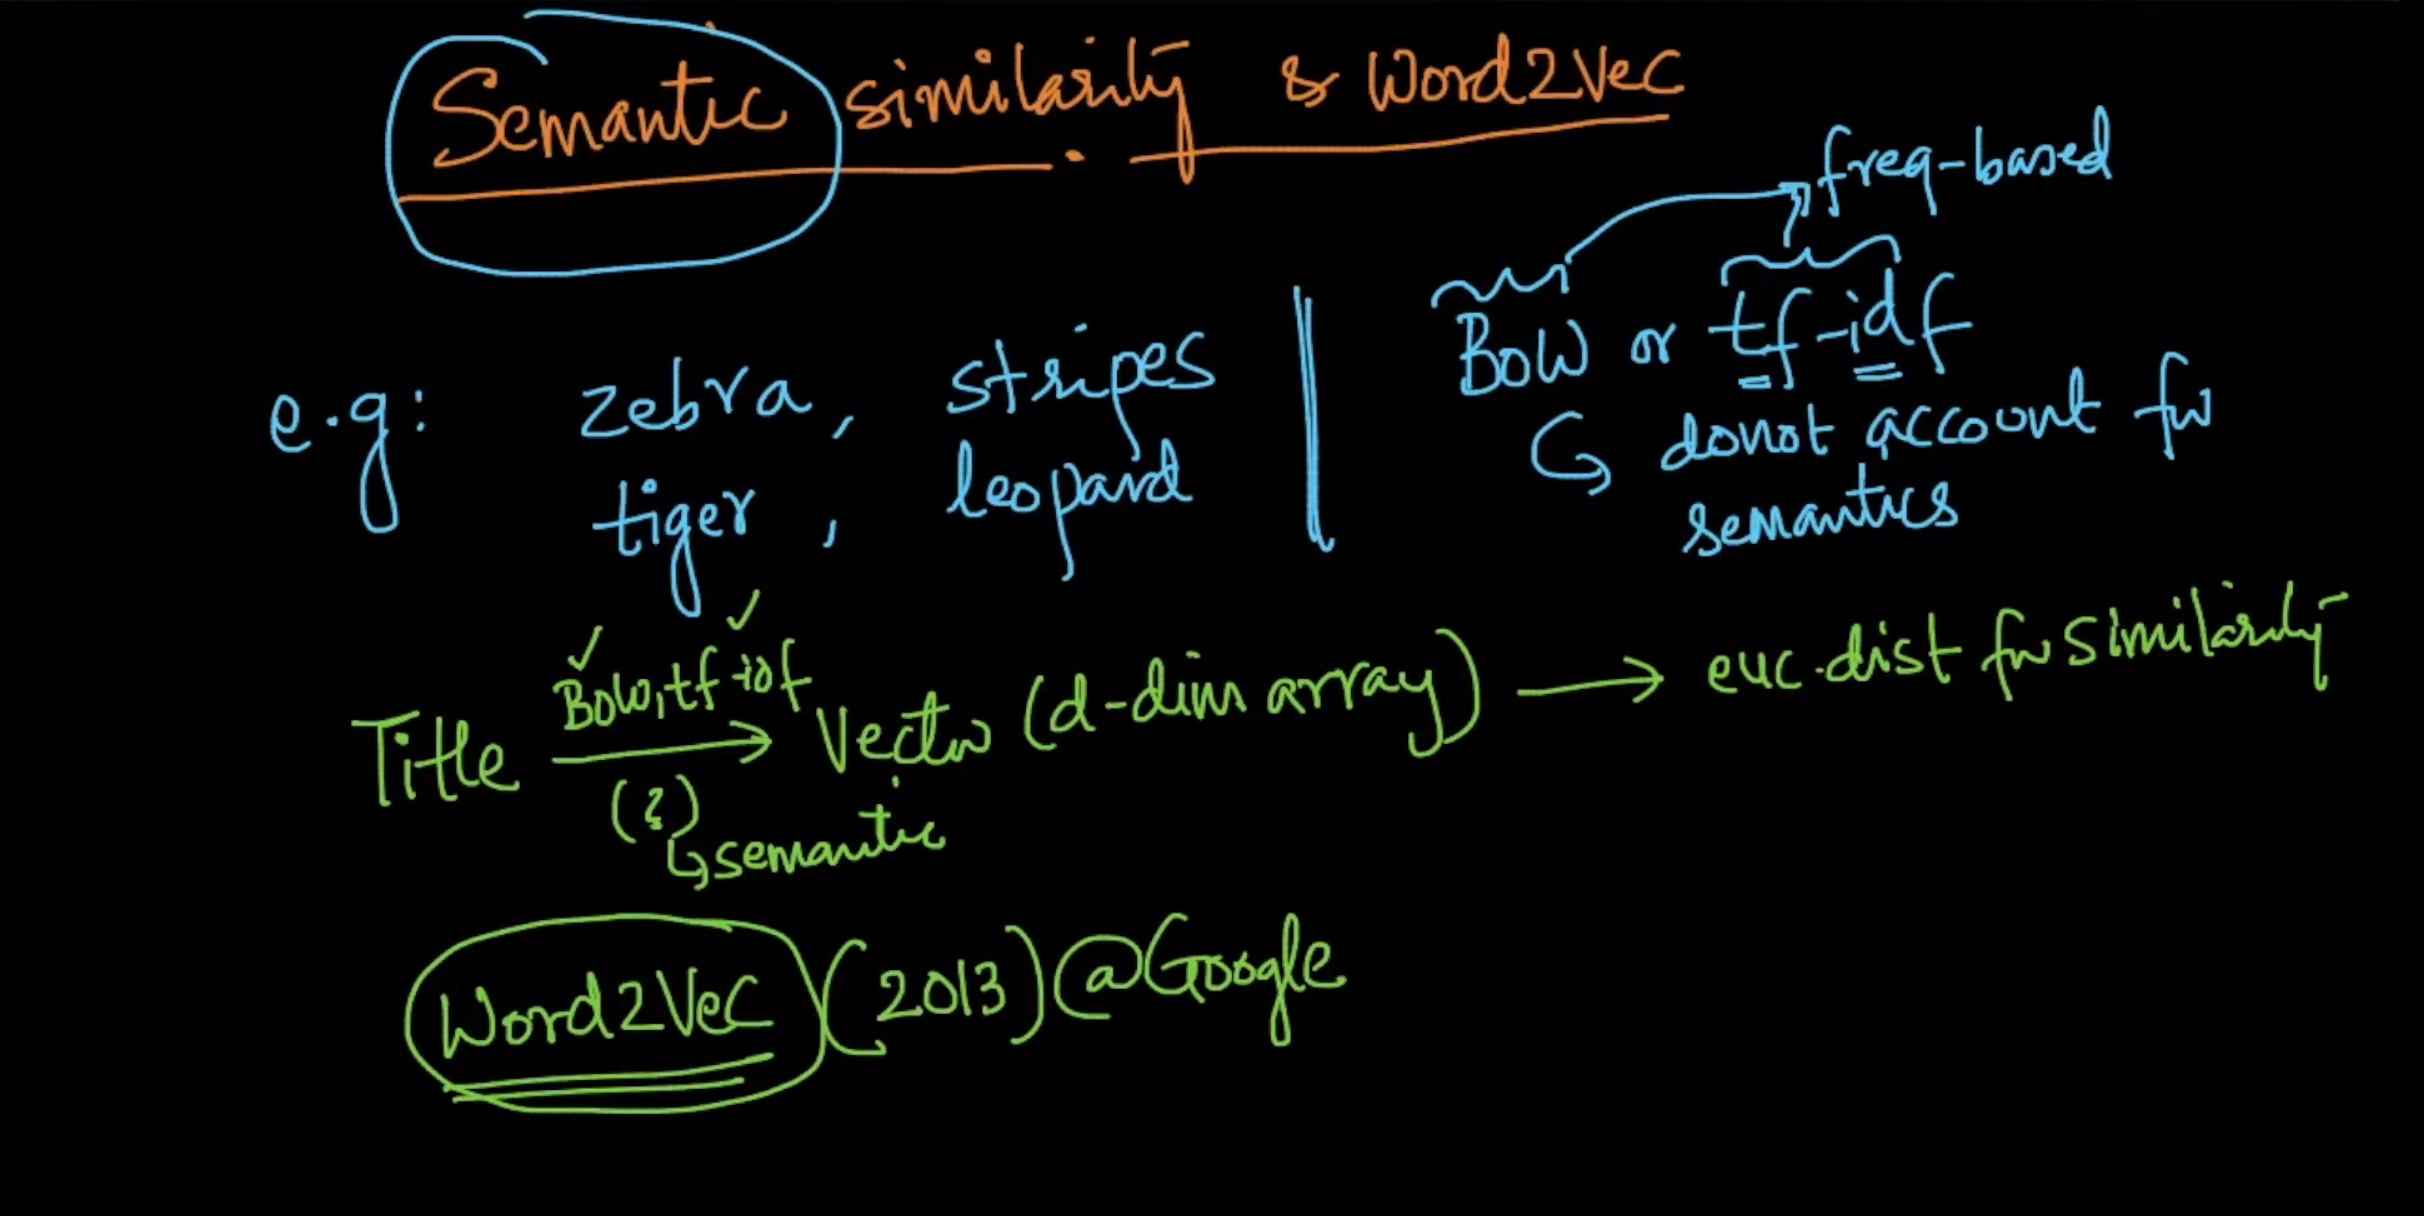 Semantic similarity & Word2Vec
freq-based
e.g: zebra, stripes
tiger, leopard
BOW or tf-idf
donot account for
semantics
BOW, tf-idf
Title → Vector (d-dim array) → euc.dist for similarity
(?)
semantic
Word2Vec (2013) @Google